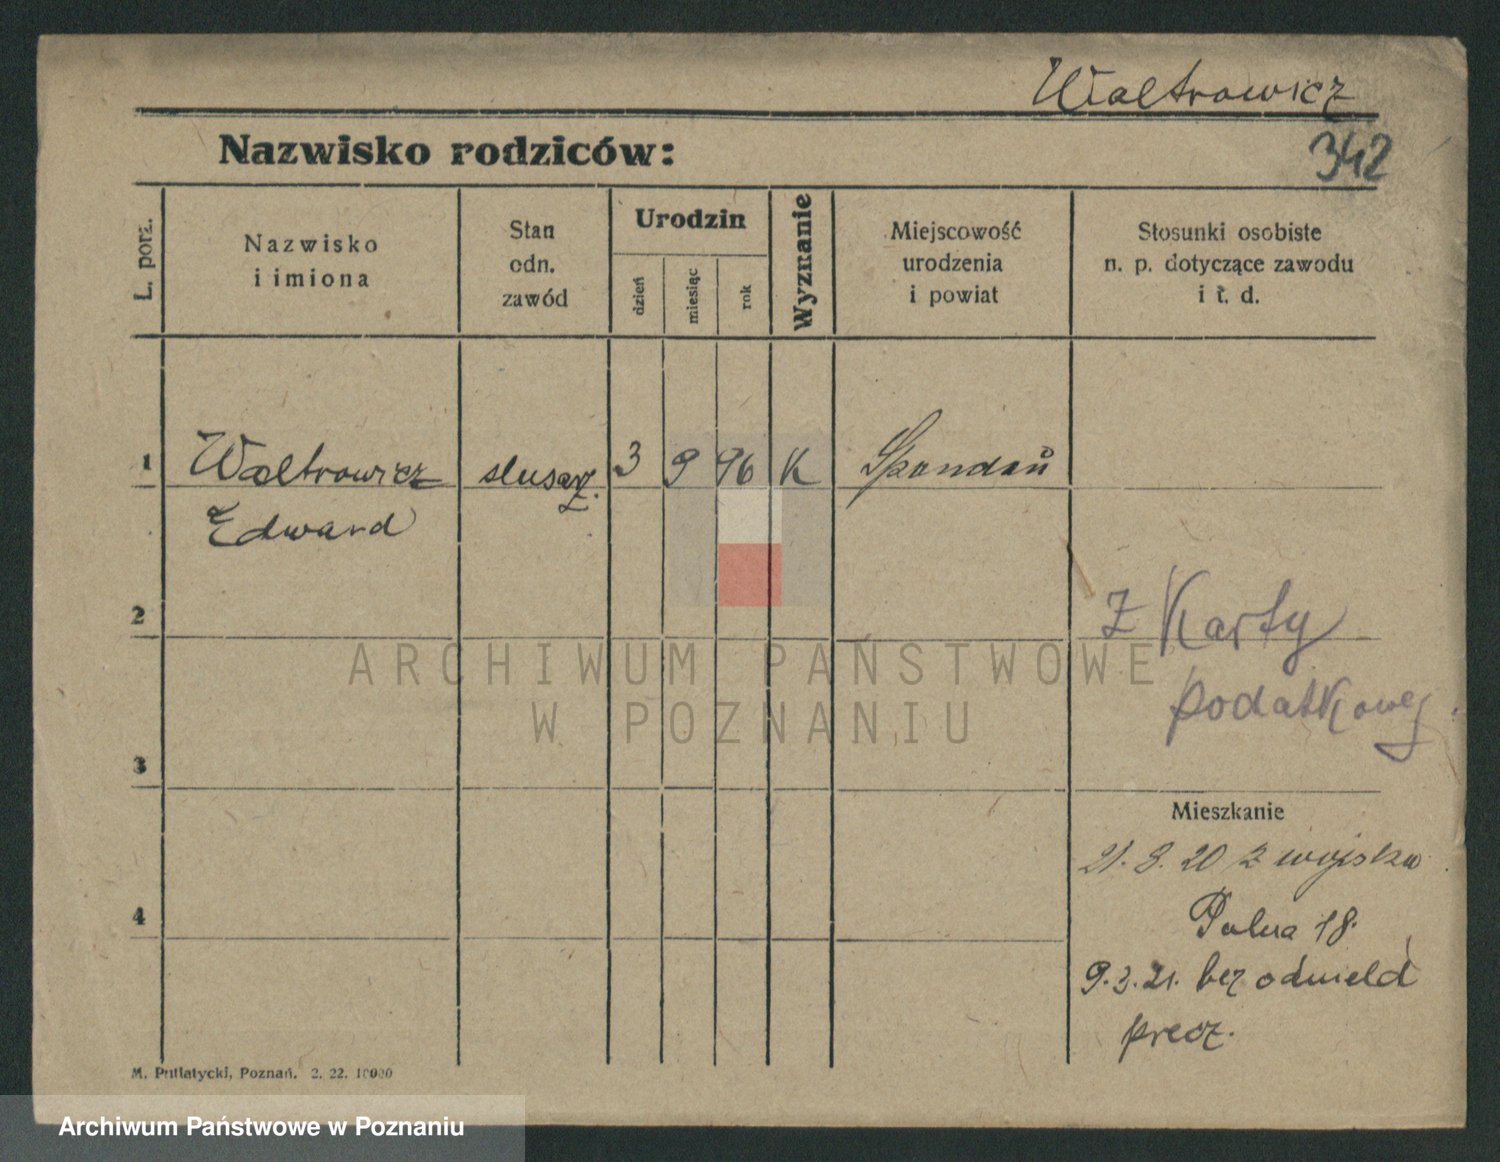 Waltrowicz
Nazwisko rodziców:
342
L. porz.
Nazwisko
i imiona
Stan
odn.
zawód
Urodzin
dzień
miesiąc
rok
Wyznanie
Miejscowość
urodzenia
i powiat
Stosunki osobiste
n. p. dotyczące zawodu
i t. d.
1 Waltrowicz ślusarz. 3 9 96 K Spandau
Edward
2
Z Karty
podatkowej
3
Mieszkanie
21. 8. 20 z wojska
4
Polna 18.
9.3.21. bez odmeld
precz.
M. Putiatycki, Poznań. 2. 22. 10000
ARCHIWUM PAŃSTWOWE
W POZNANIU
Archiwum Państwowe w Poznaniu